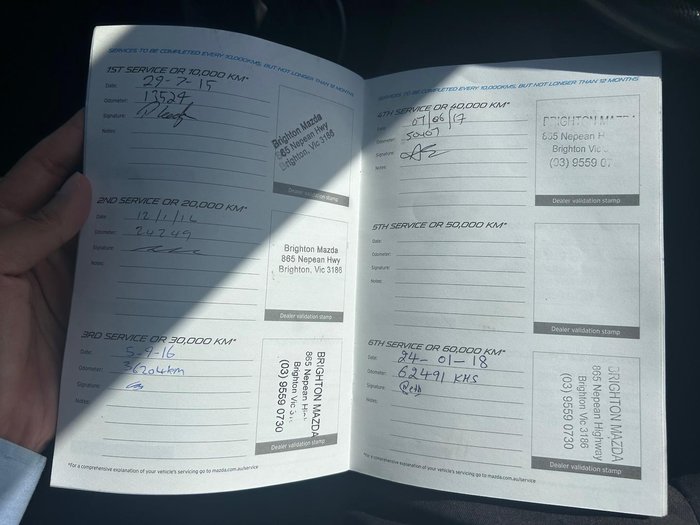 SERVICES TO BE COMPLETED EVERY 10,000KMS, BUT NOT LONGER THAN 12 MONTHS
1ST SERVICE OR 10,000 KM*
Date: 29-7-15
Odometer: 13524
Signature:
Notes:
Brighton Mazda
865 Nepean Hwy
Brighton, Vic 3186
Dealer validation stamp
2ND SERVICE OR 20,000 KM*
Date: 12/1/16
Odometer: 24249
Signature:
Notes:
Brighton Mazda
865 Nepean Hwy
Brighton, Vic 3186
Dealer validation stamp
3RD SERVICE OR 30,000 KM*
Date: 5-9-16
Odometer: 36204km
Signature:
Notes:
BRIGHTON MAZDA
865 Nepean
Brighton Vic
(03) 9559 0730
Dealer validation stamp
*For a comprehensive explanation of your vehicle's servicing go to mazda.com.au/service
SERVICES TO BE COMPLETED EVERY 10,000KMS, BUT NOT LONGER THAN 12 MONTHS
4TH SERVICE OR 40,000 KM*
Date: 07/06/17
Odometer:
Signature:
Notes:
BRIGHTON MAZDA
865 Nepean H
Brighton Vic
(03) 9559 07
Dealer validation stamp
5TH SERVICE OR 50,000 KM*
Date:
Odometer:
Signature:
Notes:
Dealer validation stamp
6TH SERVICE OR 60,000 KM*
Date: 24-01-18
Odometer: 62491 KMS
Signature:
Notes:
BRIGHTON MAZDA
865 Nepean Highway
Brighton Vic 3186
(03) 9559 0730
Dealer validation stamp
*For a comprehensive explanation of your vehicle's servicing go to mazda.com.au/service